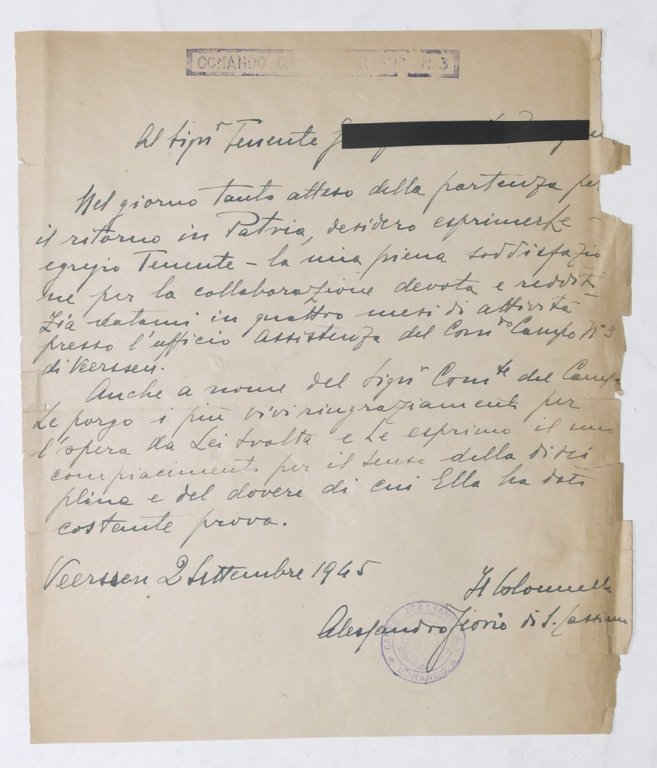 COMANDO N. 3
Al Sigr Tenente
Nel giorno tanto atteso della partenza per
il ritorno in Patria, desidero esprimerLe –
egregio Tenente – la mia piena soddisfazio
ne per la collaborazione devota e redditi
zia datami in quattro mesi di attività
presso l'ufficio assistenza del Comdo Campo N° 3
di Veerssen.
Anche a nome del Sigr Comte del Campo
Le porgo i più vivi ringraziamenti per
l'opera da Lei svolta e Le esprimo il mio
compiacimento per il senso della disci
plina e del dovere di cui Ella ha dato
costante prova.
Veerssen 2 Settembre 1945
Il Colonnello
Alessandro di S. Cassiano
ITALIANO
COMANDO